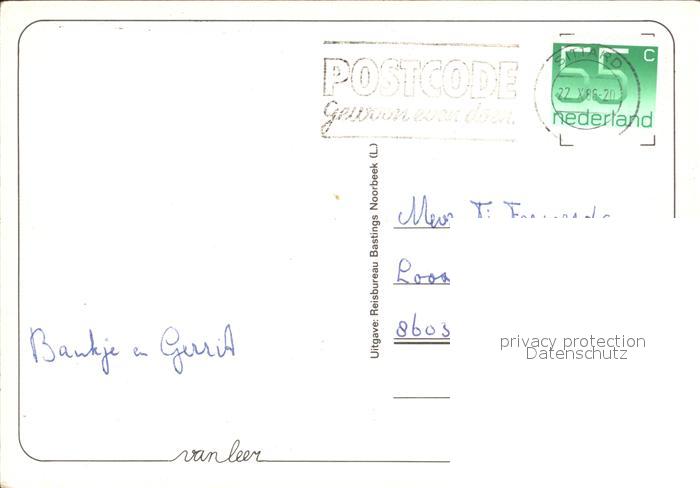 POSTCODE
gewoon even doen.
SITTARD
22 X 86-20
55 c
nederland
Uitgave: Reisbureau Bastings Noorbeek (L.)
Mevr
8603
privacy protection
Datenschutz
Baukje en Gerrit
van leer